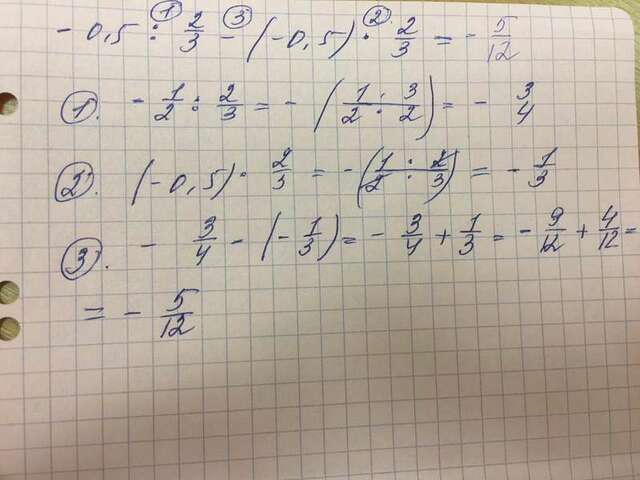 ① ③ ②
- 0,5 : 2/3 - (-0,5) · 2/3 = - 5/12
①. - 1/2 : 2/3 = - (1 · 3 / 2 · 2) = - 3/4
②. (-0,5) · 2/3 = - (1 · 2 / 2 · 3) = - 1/3
③. - 3/4 - (- 1/3) = - 3/4 + 1/3 = - 9/12 + 4/12 =
= - 5/12